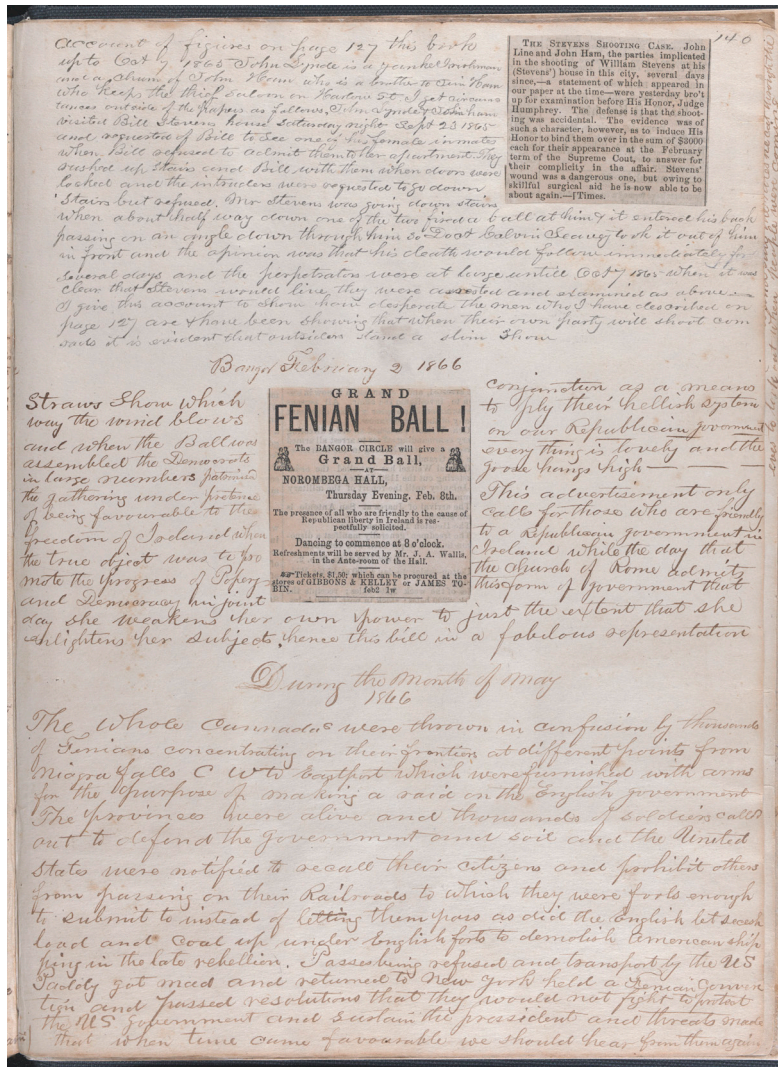 140
account of figures on page 127 this book
up to Oct 7 1865 John Lynde is a yankee Irishman
and a chum of John Ham who is a brother to Jim Ham
who keeps the thief saloon in Harlow St. I get circums
tances outside of the papers as follows. John Lynde & John ham
visited Bill Stevens house Saturday night Sept 23 1865
and requested of Bill to See one of his female inmates
when Bill refused to admit them to her apartment. They
rushed up Stairs and Bill with them when doors were
locked and the intruders were requested to go down
Stairs but refused. Mr Stevens was going down stairs
when about half way down one of the two fired a ball at him & it entered his back
passing on an angle down through him so Doct Calvin Seavey took it out of him
in front and the opinion was that his death would follow immediately for
several days and the perpetrators were at large untill Oct 7 1865 when it was
clear that Stevens would live they were arrested and examined as above
I give this account to show how desperate the men who I have described on
page 127 are & have been showing that when their own party will shoot com
rads it is evident that outsiders stand a slim show
THE STEVENS SHOOTING CASE. John
Line and John Ham, the parties implicated
in the shooting of William Stevens at his
(Stevens') house in this city, several days
since,—a statement of which appeared in
our paper at the time—were yesterday bro't
up for examination before His Honor, Judge
Humphrey. The defense is that the shoot-
ing was accidental. The evidence was of
such a character, however, as to induce His
Honor to bind them over in the sum of $3000
each for their appearance at the February
term of the Supreme Cout, to answer for
their complicity in the affair. Stevens'
wound was a dangerous one, but owing to
skillful surgical aid he is now able to be
about again.—[Times.
Bangor February 2 1866
Straws Show which
way the wind blows
and when the Ball was
assembled the Democrats
in large numbers patronised
the gathering under pretence
of being favourable to the
freedom of Ireland when
the true object was to pro
mote the progress of Popery
and Democracy in joint
GRAND
FENIAN BALL!
The BANGOR CIRCLE will give a
Grand Ball,
—AT—
NOROMBEGA HALL,
Thursday Evening, Feb. 8th.
The presence of all who are friendly to the cause of
Republican liberty in Ireland is res-
pectfully solicited.
Dancing to commence at 8 o'clock.
Refreshments will be served by Mr. J. A. Wallis,
in the Ante-room of the Hall.
Tickets, $1,50; which can be procured at the
stores of GIBBONS & KELLEY or JAMES TO-
BIN. feb2 1w
conjunction as a means
to ply their hellish system
on our Republican government
everything is lovely and the
goose hangs high — — —
This advertisement only
calls for those who are friendly
to a Republican government in
Ireland while the day that
the Church of Rome admits
this form of government that
day she weakens her own power to just the extent that she
enlightens her subjects, hence this bill in a fabulous representation
During the Month of May
1866
The whole Cannadas were thrown in confusion by thousands
of Finians concentrating on their frontier at different points from
Niagra falls C W to Eastport which were furnished with arms
for the purpose of making a raid on the English government
The provinces were alive and thousands of soldiers called
out to defend the government and soil and the United
States were notified to recall their citizens and prohibit others
from passing on their Railroads to which they were fools enough
to submit to instead of letting them pass as did the English let secesh
load and coal up under English forts to demolish American ship
ping in the late rebellion. Passes being refused and transport by the US
Paddy got mad and returned to New York held a Fenian conven
tion and passed resolutions that they would not fight to protect
the US government and sustain the president and threats made
that when time came favourable we should hear from them again